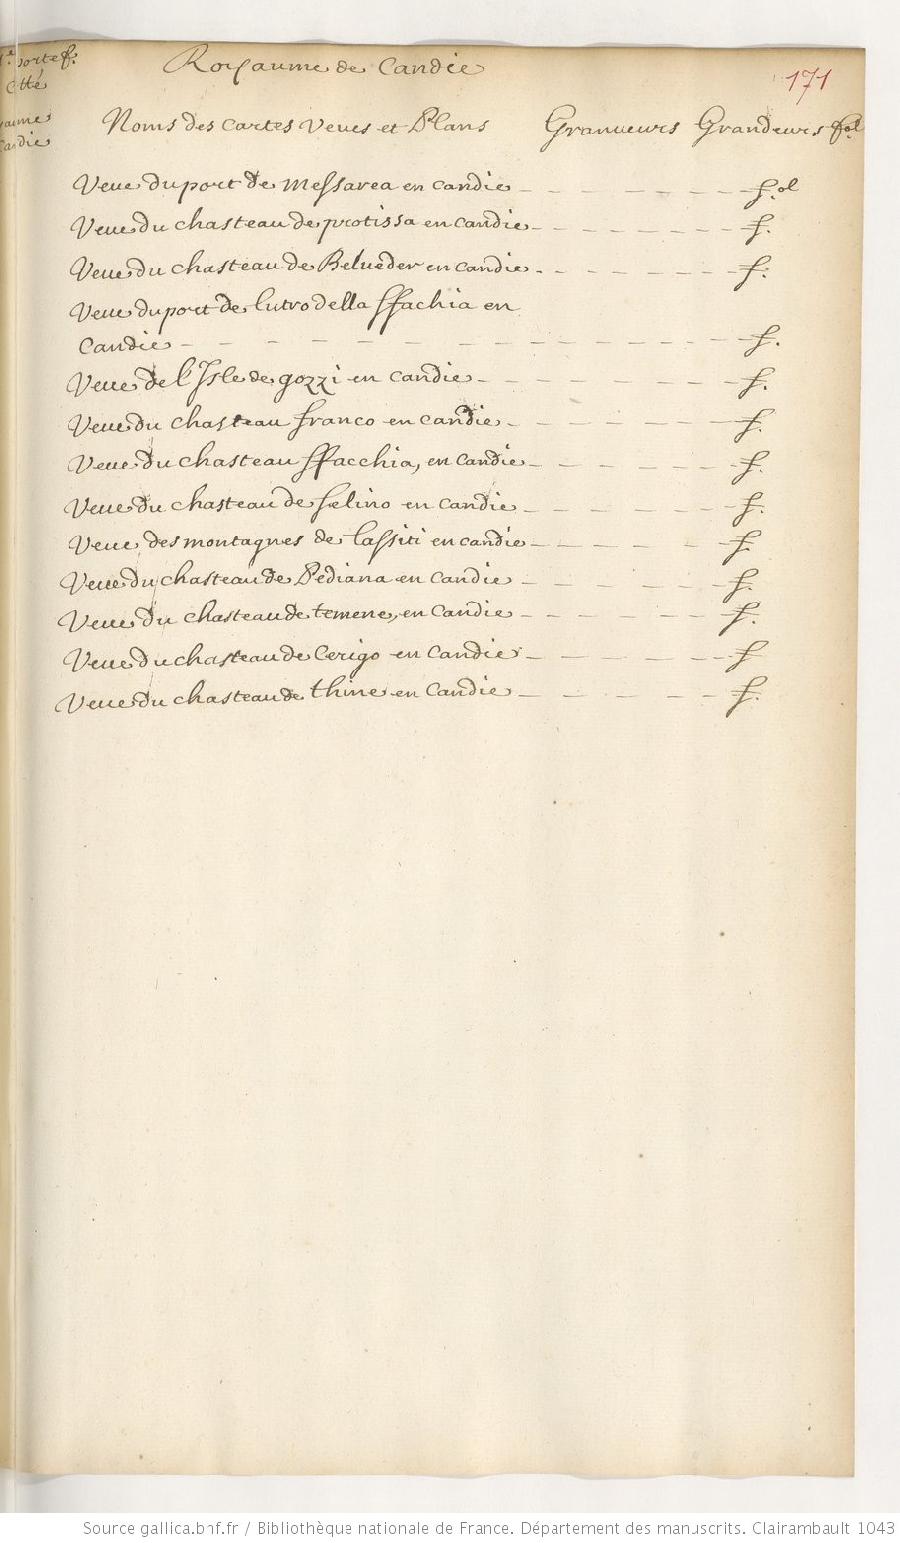 portef.
Cotté
Royaume de Candie
171
Noms des cartes Veues et Plans Graveurs Grandeurs fol
Veue du port de Messarea en candie fol
Veue du chasteau de protissa en candie f.
Veue du chasteau de Belueder en candie f.
Veue du port de lutro della Sfachia en
Candie f.
Veue de l'Isle de gozzi en candie f.
Veue du chasteau franco en candie f.
Veue du chasteau Sfacchia, en candie f.
Veue du chasteau de selino en candie f.
Veue des montagnes de lassiti en candie f.
Veue du chasteau de Pediana en candie f.
Veue du chasteau de temene, en Candie f.
Veue du chasteau de Cerigo en candie f
Veue du chasteau de thine en Candie f.
Source gallica.bnf.fr / Bibliothèque nationale de France. Département des manuscrits. Clairambault 1043